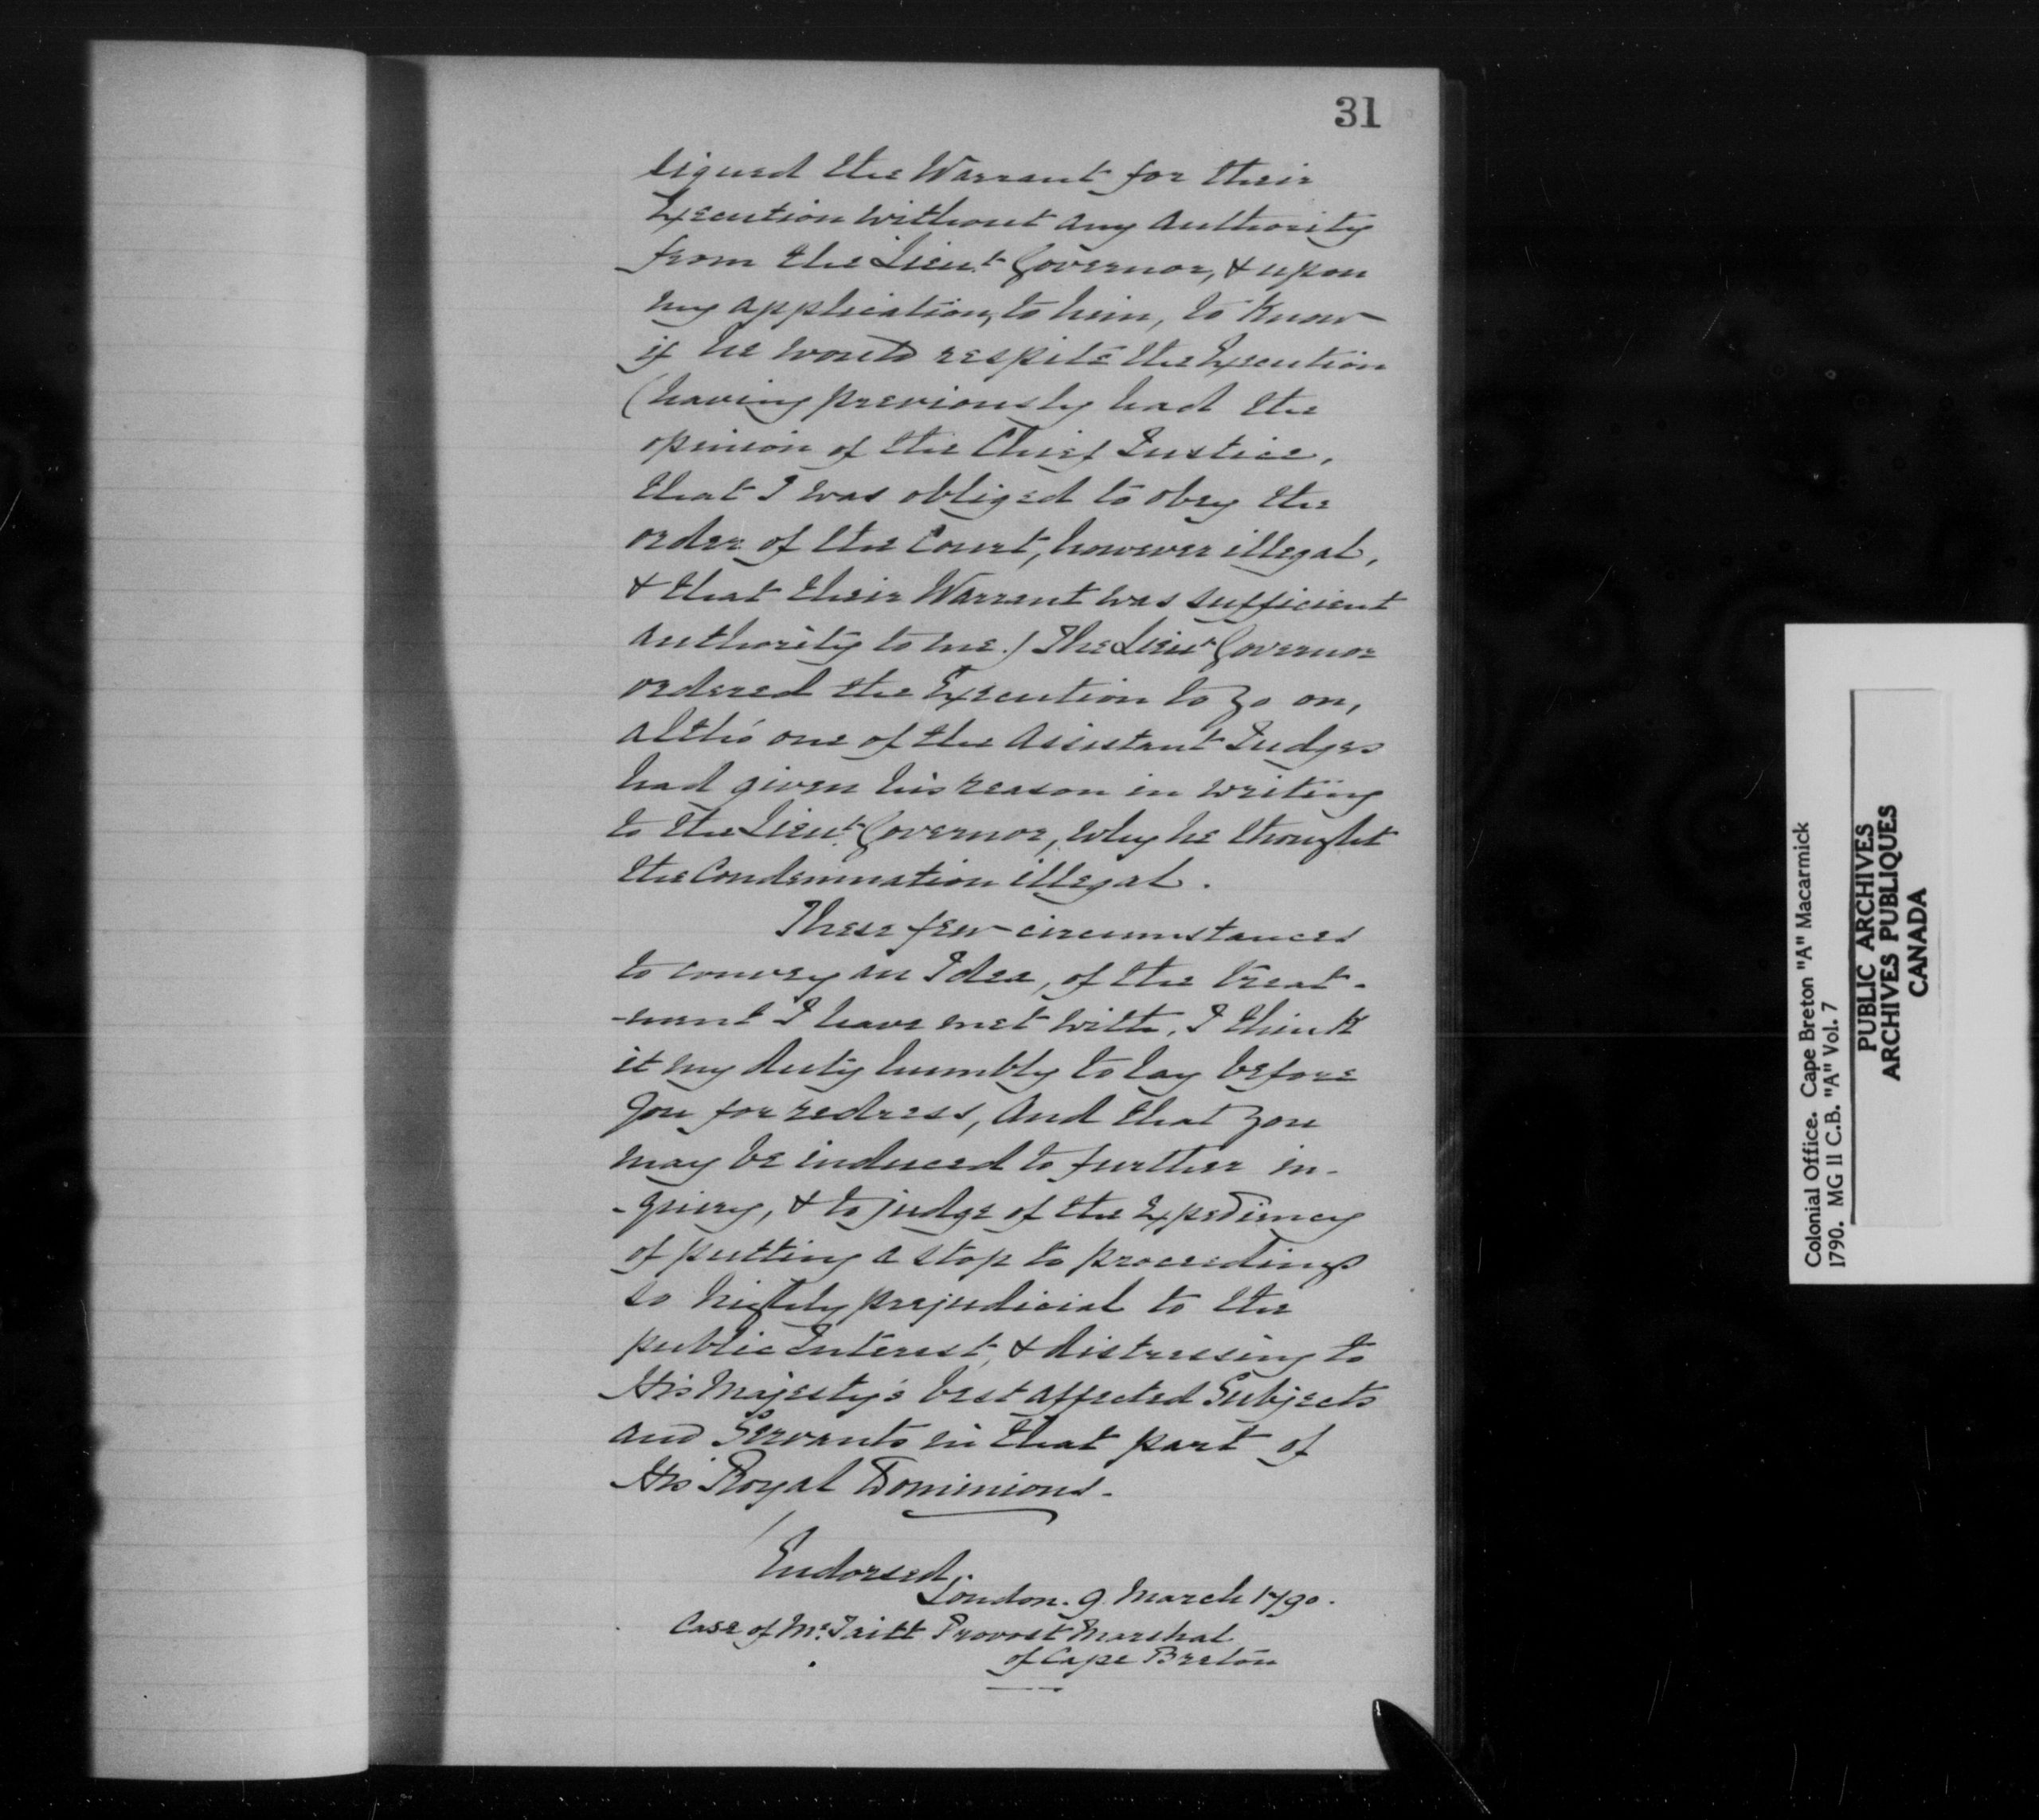 31
signed the Warrant for their
Execution without any authority
from the Lieut. Governor, & upon
my application, to him, to know
if he would respite the Execution
(having previously had the
opinion of the Chief Justice,
that I was obliged to obey the
order of the Court, however illegal,
& that their Warrant was sufficient
authority to me.) The Lieut. Governor
ordered the Execution to go on,
altho' one of the Assistant Judges
had given his reason in writing
to the Lieut. Governor, why he thought
the Condemnation illegal.
These few circumstances
to convey an Idea, of the treat-
-ment I have met with, I think
it my duty humbly to lay before
you for redress, and that you
may be induced to further in-
-quiry, & to judge of the Expediency
of putting a stop to proceedings
so highly prejudicial to the
public Interest, & distressing to
His Majesty's best affected Subjects
and Servants in that part of
His Royal Dominions.
Endorsed,
London. 9 March 1790.
Case of Mr. Taitt Provost Marshal
of Cape Breton
Colonial Office. Cape Breton "A" Macarmick
1790. MG 11 C.B. "A" Vol. 7
PUBLIC ARCHIVES
ARCHIVES PUBLIQUES
CANADA